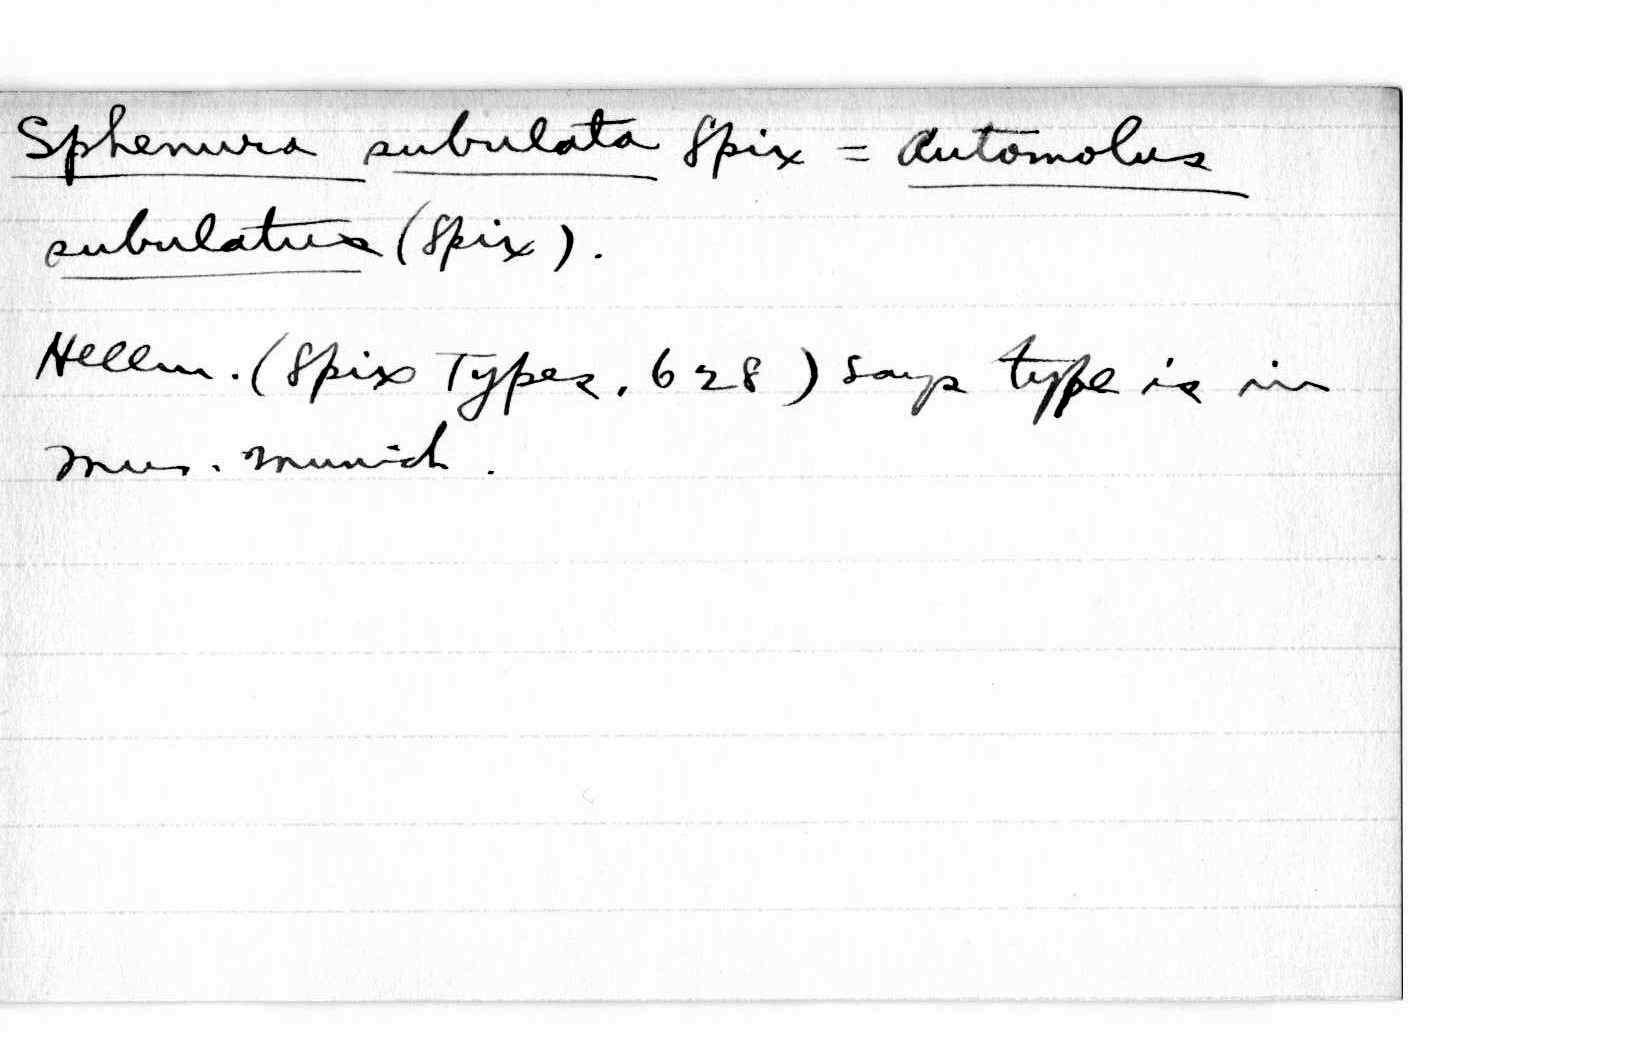 Sphenura subulata Spix = Automolus
subulatus (Spix).
Hellm. (Spix Types, 628) says type is in
Mus. Munich.